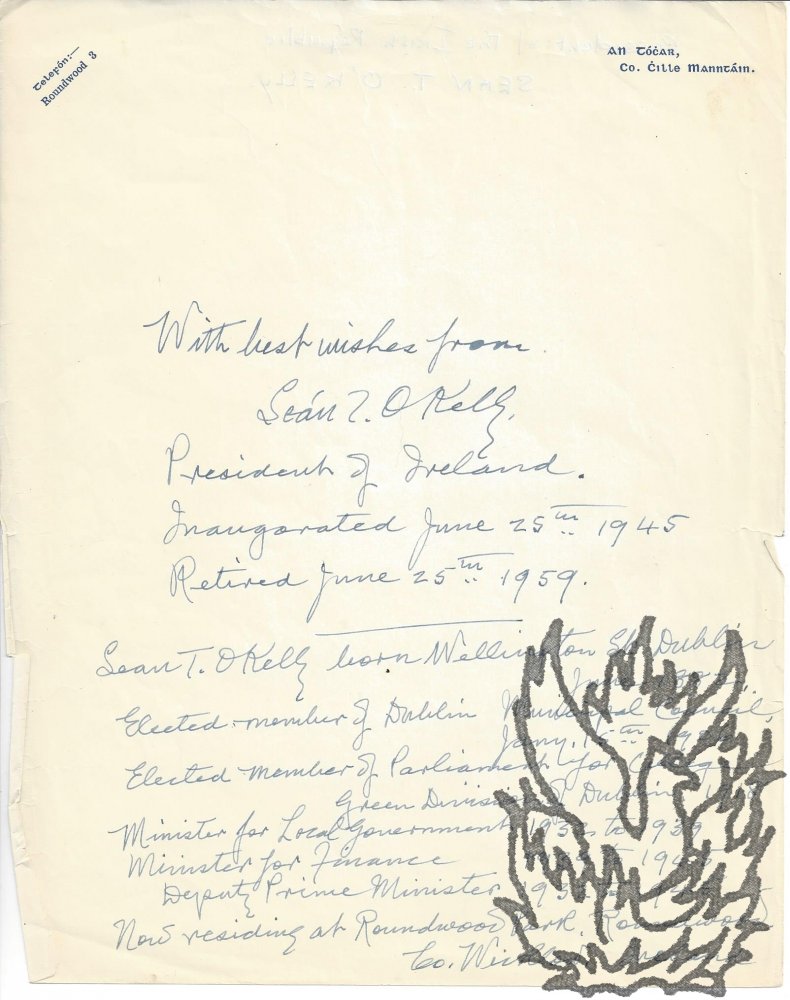 Telefón:—
Roundwood 3
An Tóċar,
Co. Ċille Manntáin.
With best wishes from
Seán T. O Kelly,
President of Ireland.
Inaugorated June 25th 1945
Retired June 25th 1959.
Sean T. O Kelly born Wellington St. Dublin
June
Elected member of Dublin Municipal Council,
Jany.
Elected Member of Parliament for College
Green Division of Dublin
Minister for Local Government to 1939
Minister for Finance
Deputy Prime Minister
Now residing at Roundwood Park, Roundwood
Co. Wicklow Ireland